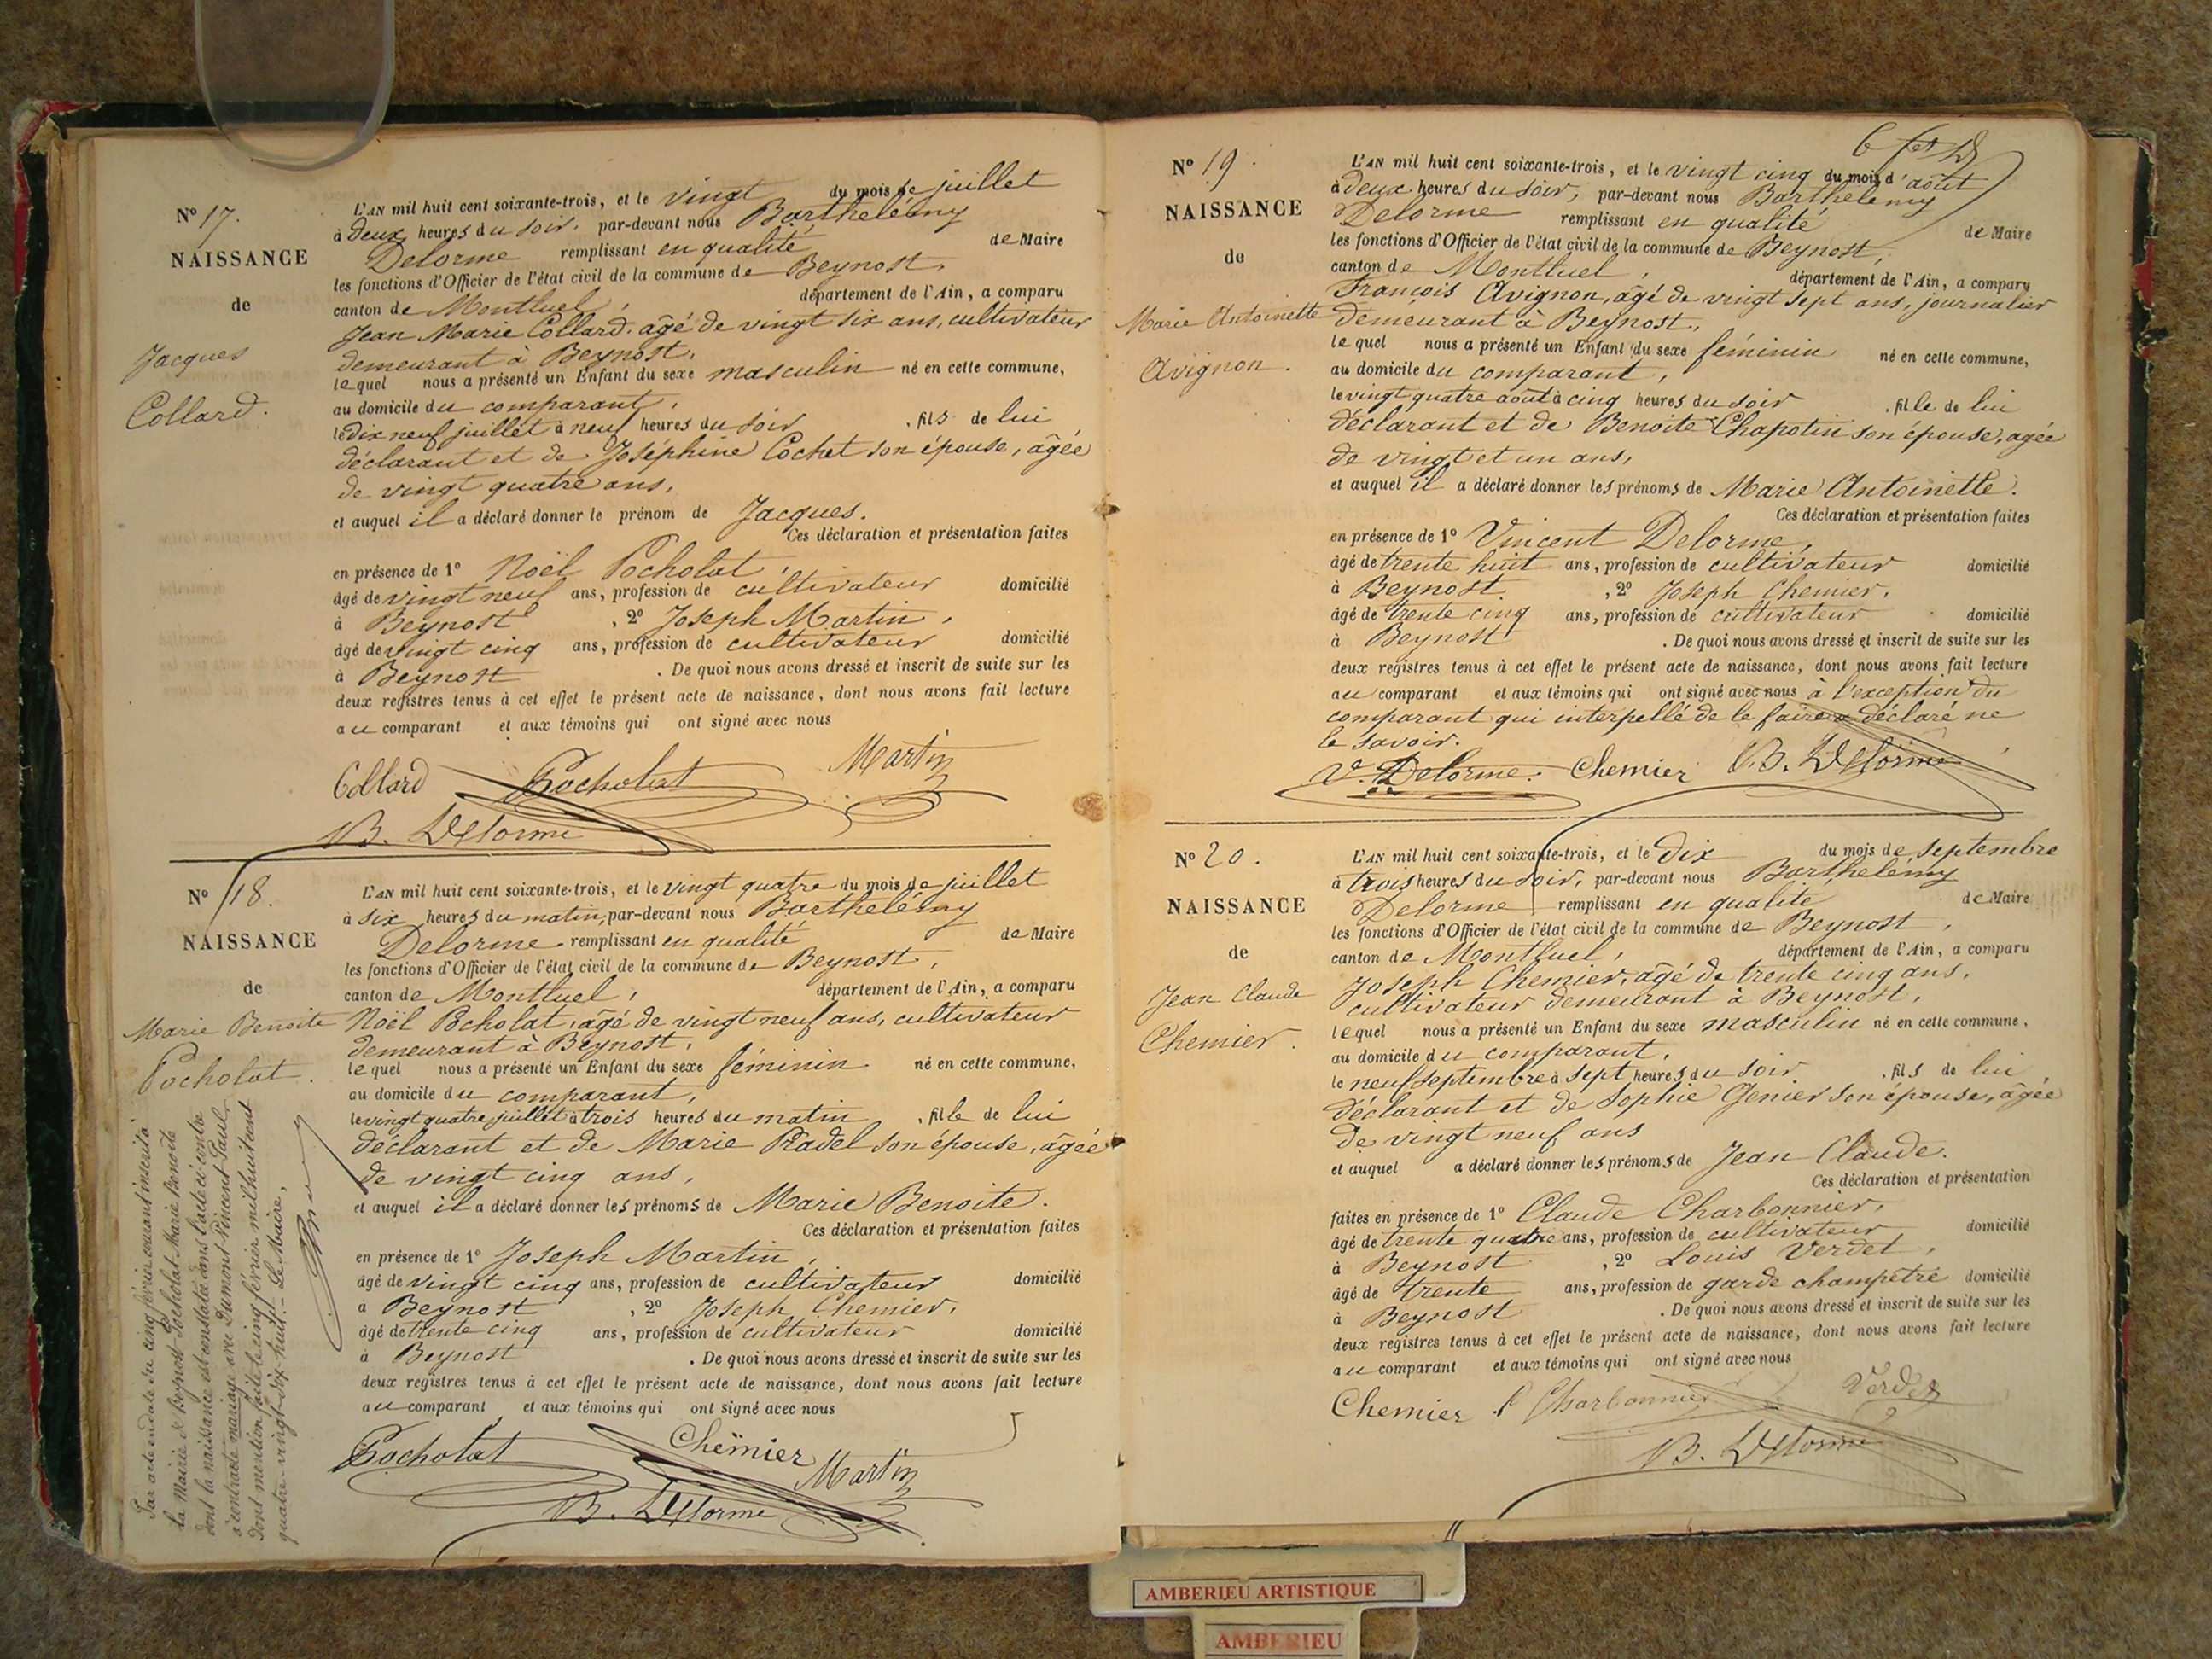 N° 17.
NAISSANCE
de
Jacques
Collard.
L'AN mil huit cent soixante-trois, et le vingt du mois de juillet
à deux heures du soir, par-devant nous Barthelémy
Delorme remplissant en qualité de Maire
les fonctions d'Officier de l'état civil de la commune de Beynost,
canton de Montluel, département de l'Ain, a comparu
Jean Marie Collard, âgé de vingt six ans, cultivateur
demeurant à Beynost,
lequel nous a présenté un Enfant du sexe masculin né en cette commune,
au domicile du comparant,
le dix neuf juillet à neuf heures du soir, fils de lui
déclarant et de Joséphine Cochet son épouse, âgée
de vingt quatre ans,
et auquel il a déclaré donner le prénom de Jacques.
Ces déclaration et présentation faites
en présence de 1° Noël Pocholat,
âgé de vingt neuf ans, profession de cultivateur domicilié
à Beynost, 2° Joseph Martin,
âgé de vingt cinq ans, profession de cultivateur domicilié
à Beynost. De quoi nous avons dressé et inscrit de suite sur les
deux registres tenus à cet effet le présent acte de naissance, dont nous avons fait lecture
au comparant et aux témoins qui ont signé avec nous
Collard Pocholat Martin
B. Delorme
N° 18.
NAISSANCE
de
Marie Benoite
Pocholat.
L'AN mil huit cent soixante-trois, et le vingt quatre du mois de juillet
à six heures du matin, par-devant nous Barthelémy
Delorme remplissant en qualité de Maire
les fonctions d'Officier de l'état civil de la commune de Beynost,
canton de Montluel, département de l'Ain, a comparu
Noël Pocholat, âgé de vingt neuf ans, cultivateur
demeurant à Beynost,
lequel nous a présenté un Enfant du sexe féminin né en cette commune,
au domicile du comparant,
le vingt quatre juillet à trois heures du matin, fille de lui
déclarant et de Marie Pradel son épouse, âgée
de vingt cinq ans,
et auquel il a déclaré donner les prénoms de Marie Benoite.
Ces déclaration et présentation faites
en présence de 1° Joseph Martin,
âgé de vingt cinq ans, profession de cultivateur domicilié
à Beynost, 2° Joseph Chemier,
âgé de trente cinq ans, profession de cultivateur domicilié
à Beynost. De quoi nous avons dressé et inscrit de suite sur les
deux registres tenus à cet effet le présent acte de naissance, dont nous avons fait lecture
au comparant et aux témoins qui ont signé avec nous
Pocholat Chemier Martin
B. Delorme
Par acte en date du cinq février courant inscrit à
la Mairie de Beynost Pocholat Marie Benoite
dont la naissance est constatée dans l'acte ci-contre
a contracté mariage avec Dumont Vincent Paul,
dont mention faite le cinq février mil huit cent
quatre-vingt-dix-huit. - Le Maire,
N° 19.
NAISSANCE
de
Marie Antoinette
Avignon.
L'AN mil huit cent soixante-trois, et le vingt cinq du mois d'août
à deux heures du soir, par-devant nous Barthelémy
Delorme remplissant en qualité de Maire
les fonctions d'Officier de l'état civil de la commune de Beynost,
canton de Montluel, département de l'Ain, a comparu
François Avignon, âgé de vingt sept ans, journalier
demeurant à Beynost,
lequel nous a présenté un Enfant du sexe féminin né en cette commune,
au domicile du comparant,
le vingt quatre août à cinq heures du soir, fille de lui
déclarant et de Benoite Chapotin son épouse, âgée
de vingt et un ans,
et auquel il a déclaré donner les prénoms de Marie Antoinette.
Ces déclaration et présentation faites
en présence de 1° Vincent Delorme,
âgé de trente huit ans, profession de cultivateur domicilié
à Beynost, 2° Joseph Chemier,
âgé de trente cinq ans, profession de cultivateur domicilié
à Beynost. De quoi nous avons dressé et inscrit de suite sur les
deux registres tenus à cet effet le présent acte de naissance, dont nous avons fait lecture
au comparant et aux témoins qui ont signé avec nous à l'exception du
comparant qui interpellé de le faire a déclaré ne
le savoir.
V. Delorme. Chemier B. Delorme
N° 20.
NAISSANCE
de
Jean Claude
Chemier.
L'AN mil huit cent soixante-trois, et le dix du mois de septembre
à trois heures du soir, par-devant nous Barthelémy
Delorme remplissant en qualité de Maire
les fonctions d'Officier de l'état civil de la commune de Beynost,
canton de Montluel, département de l'Ain, a comparu
Joseph Chemier, âgé de trente cinq ans,
cultivateur demeurant à Beynost,
lequel nous a présenté un Enfant du sexe masculin né en cette commune,
au domicile du comparant,
le neuf septembre à sept heures du soir, fils de lui
déclarant et de Sophie Genier son épouse, âgée
de vingt neuf ans
et auquel a déclaré donner les prénoms de Jean Claude.
Ces déclaration et présentation
faites en présence de 1° Claude Charbonnier,
âgé de trente quatre ans, profession de cultivateur domicilié
à Beynost, 2° Louis Verdet,
âgé de trente ans, profession de garde champêtre domicilié
à Beynost. De quoi nous avons dressé et inscrit de suite sur les
deux registres tenus à cet effet le présent acte de naissance, dont nous avons fait lecture
au comparant et aux témoins qui ont signé avec nous
Chemier Charbonnier Verdet
B. Delorme
AMBERIEU ARTISTIQUE
AMBERIEU